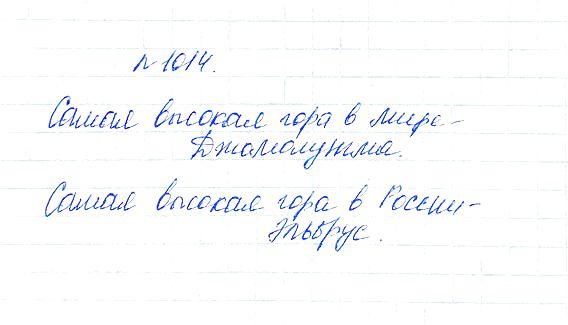 № 1014.
Самая высокая гора в мире-
Джомолунгма.
Самая высокая гора в России-
Эльбрус.